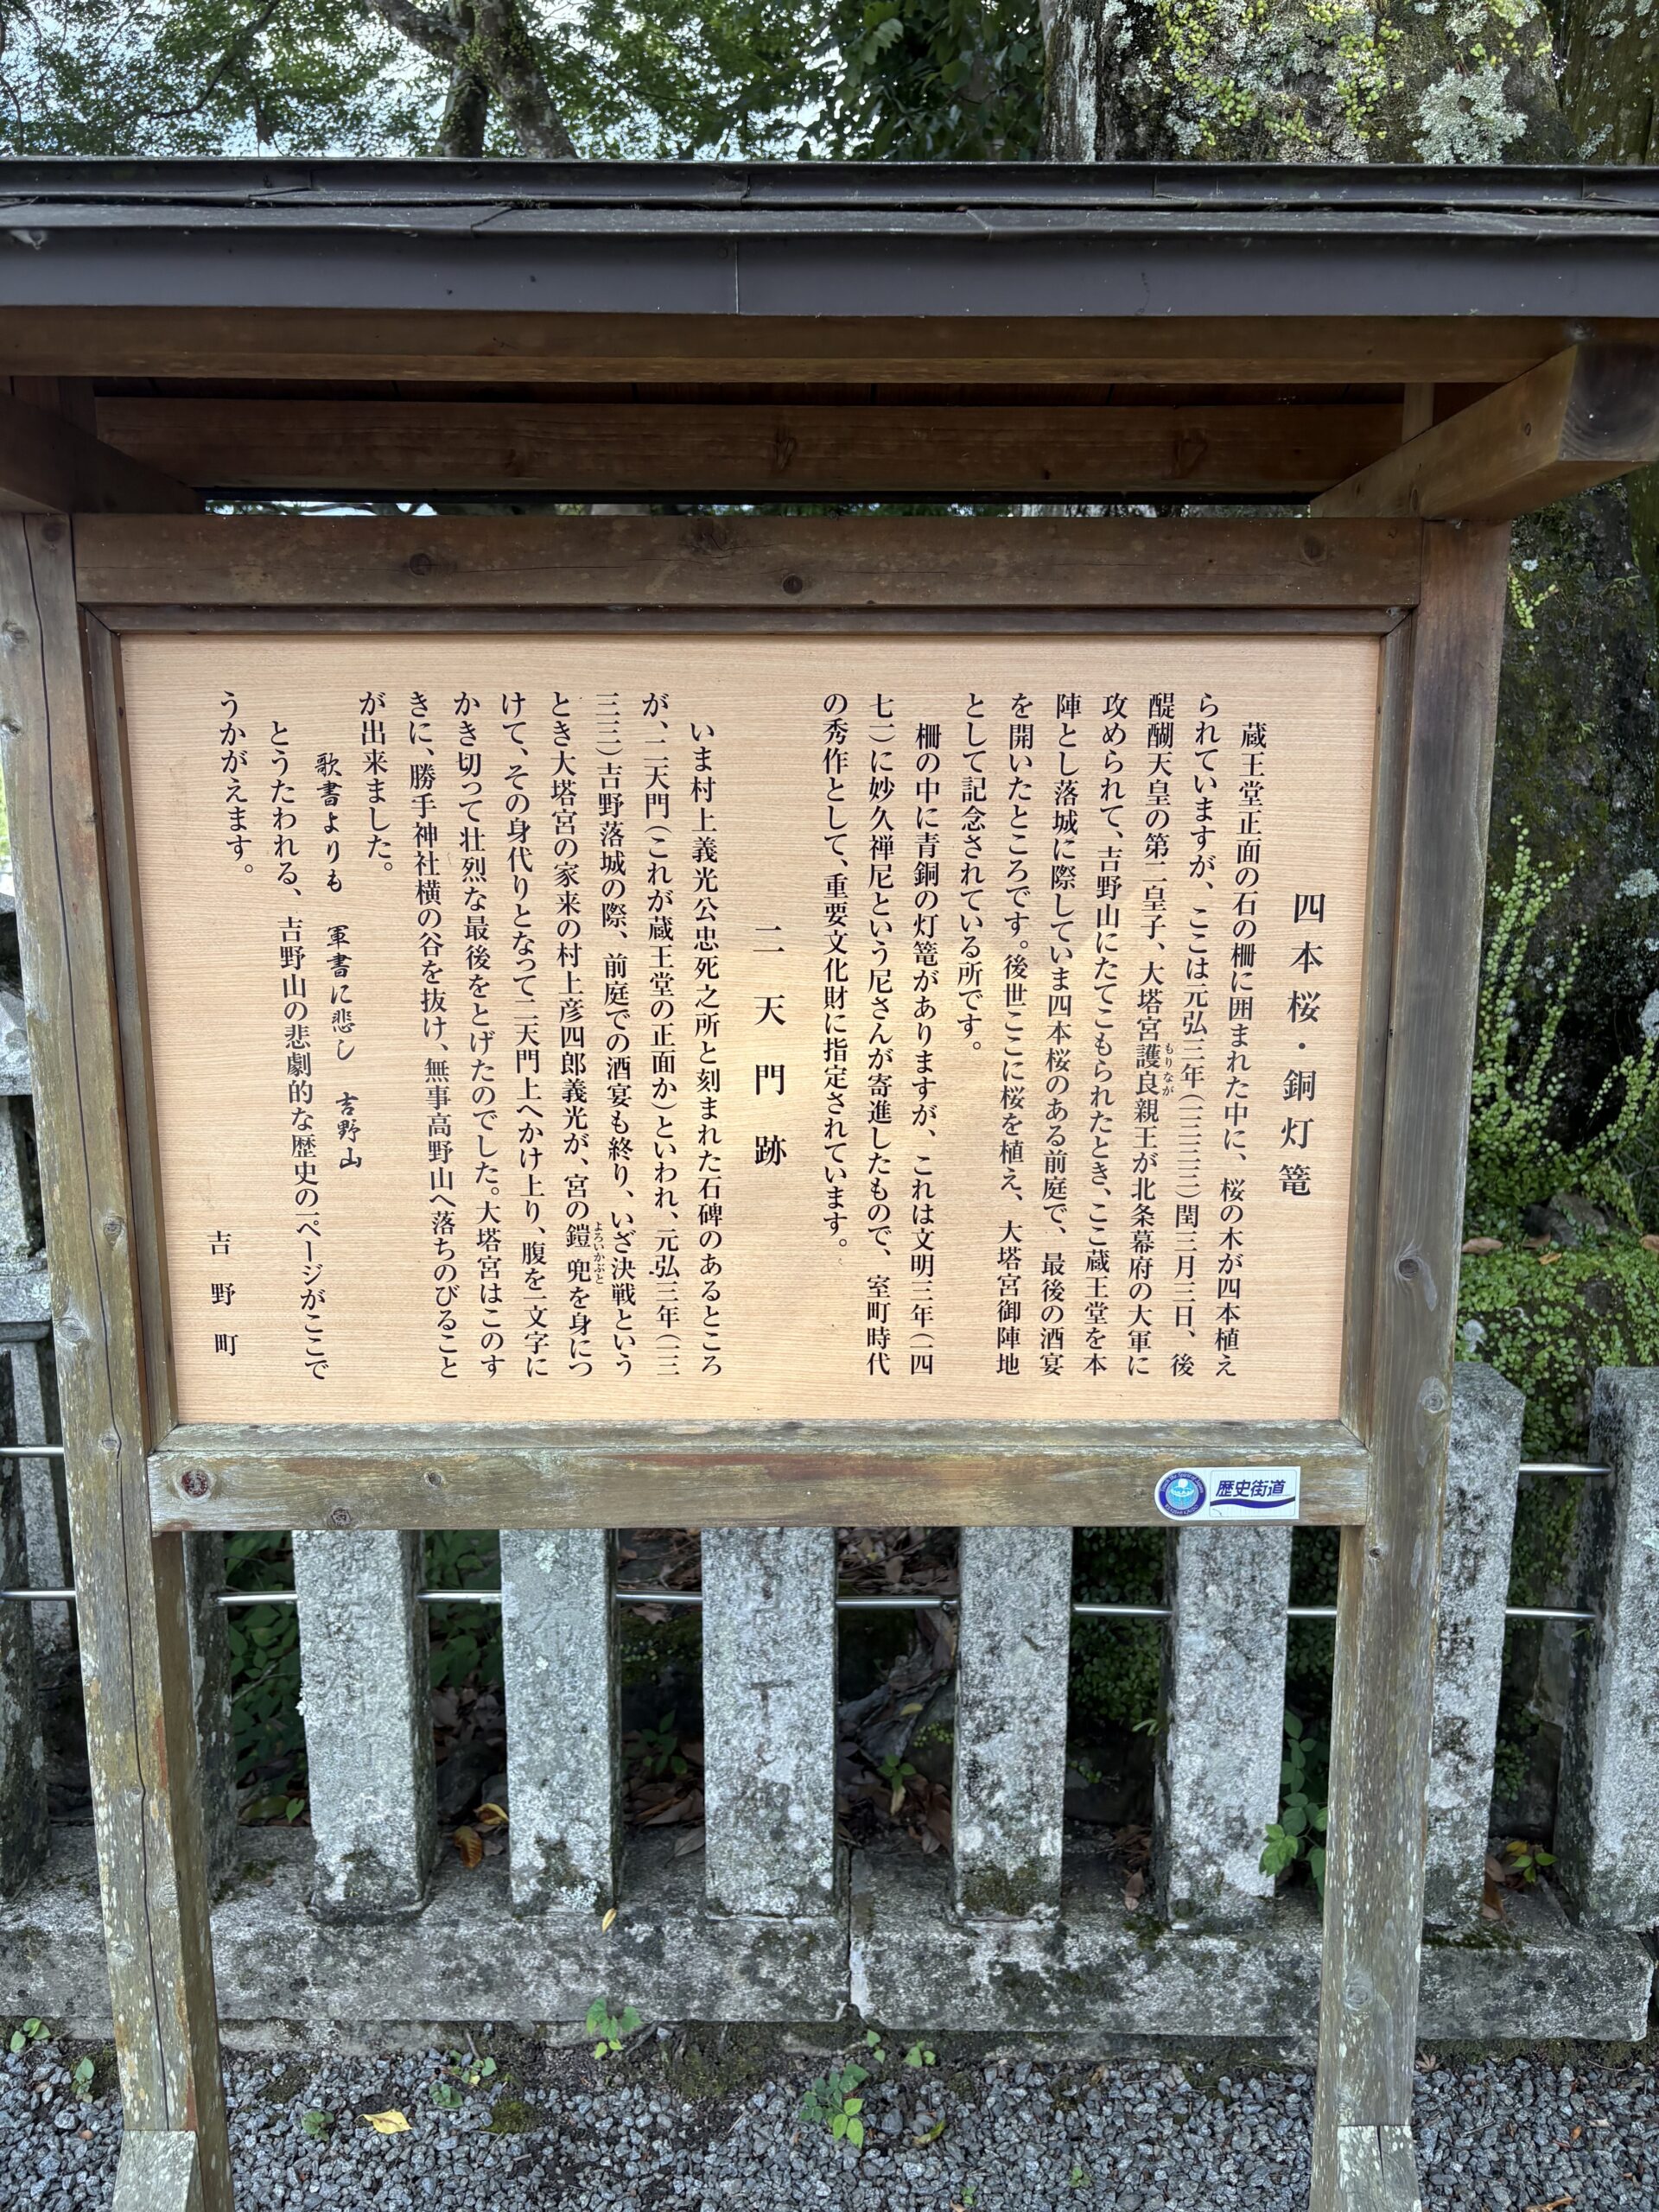 四本桜・銅灯篭
蔵王堂正面の石の柵に囲まれた中に、桜の木が四本植え
られていますが、ここは元弘三年(一三三三)閏三月三日、後
醍醐天皇の第二皇子、大塔宮護良親王が北条幕府の大軍に
もりなが
攻められて、吉野山にたてこもられたとき、ここ蔵王堂を本
陣とし落城に際していま四本桜のある前庭で、最後の酒宴
を開いたところです。後世ここに桜を植え、大塔宮御陣地
として記念されている所です。
柵の中に青銅の灯篭がありますが、これは文明三年(一四
七一)に妙久禅尼という尼さんが寄進したもので、室町時代
の秀作として、重要文化財に指定されています。
二天門跡
いま村上義光公忠死之所と刻まれた石碑のあるところ
が、二天門(これが蔵王堂の正面か)といわれ、元弘三年(一三
三三)吉野落城の際、前庭での酒宴も終り、いざ決戦という
とき大塔宮の家来の村上彦四郎義光が、宮の鎧兜を身につ
よろいかぶと
けて、その身代りとなって二天門上へかけ上り、腹を一文字に
かき切って壮烈な最後をとげたのでした。大塔宮はこのす
きに、勝手神社横の谷を抜け、無事高野山へ落ちのびること
が出来ました。
歌書よりも 軍書に悲し 吉野山
とうたわれる、吉野山の悲劇的な歴史の一ページがここで
うかがえます。
吉野町
歴史街道